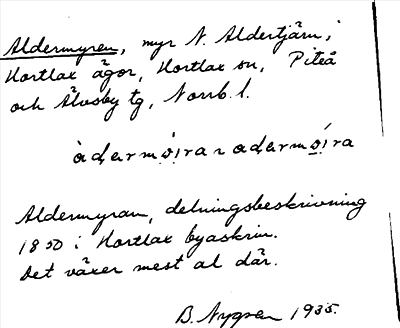 Aldermyren, myr N. Aldertjärn, i
Hortlax ägor, Hortlax sn, Piteå
och Älvsby tg, Norrb. l.
Aldermyran, delningsbeskrivning
1850 i Hortlax byaskrin.
Det växer mest al där.
B. Nygren 1935.